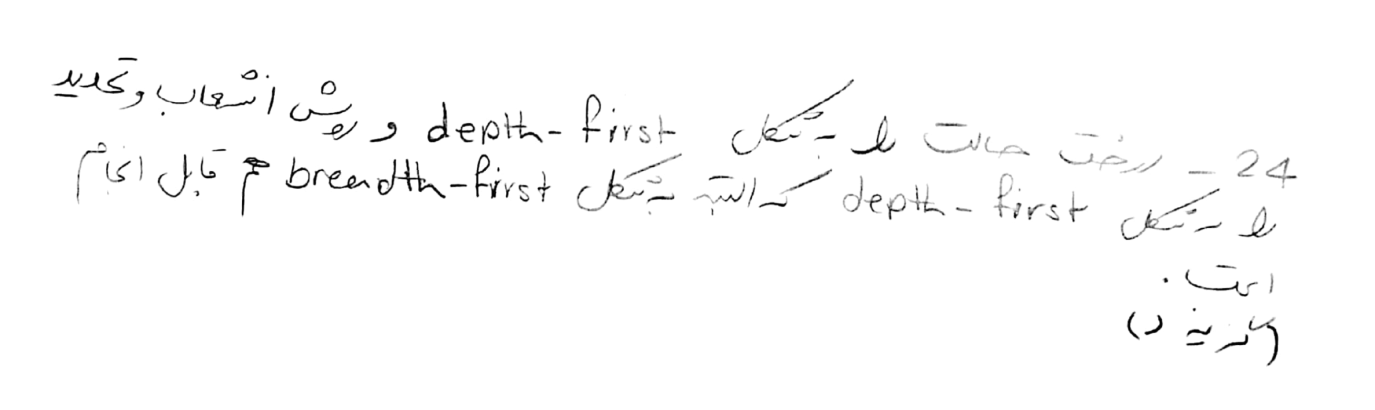 24 - درخت حالت را به شکل depth-first و روش انشعاب و تحدید
را به شکل depth-first که البته به شکل breadth-first هم قابل انجام
است.
(گزینه د)